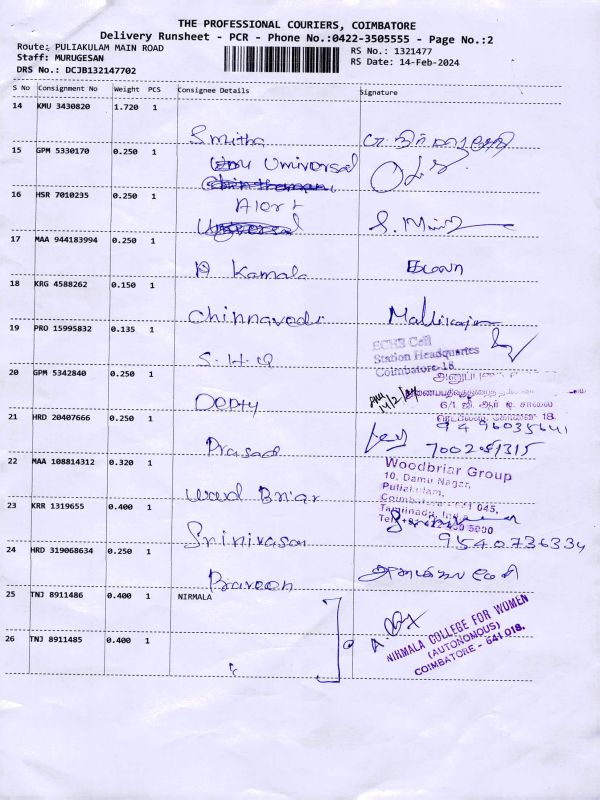 THE PROFESSIONAL COURIERS, COIMBATORE
Delivery Runsheet - PCR - Phone No.:0422-3505555 - Page No.:2
Route: PULIAKULAM MAIN ROAD
RS No.: 1321477
Staff: MURUGESAN
RS Date: 14-Feb-2024
DRS No.: DCJB132147702
S No Consignment No Weight PCS Consignee Details Signature
14 KMU 3430820 1.720 1
Smitha
15 GPM 5330170 0.250 1
Universal
16 HSR 7010235 0.250 1
Alert
17 MAA 944183994 0.250 1
P Kamala கமலா
18 KRG 4588262 0.150 1
Chinnavedi Mallika
19 PRO 15995832 0.135 1
S.H.Q
ECHS Cell
Station Headquartes
Coimbatore-18
20 GPM 5342840 0.250 1
14/2/24
6/1 ஜி. ஆர் டி. சாலை
21 HRD 20407666 0.250 1
9496035641
Prasad 7002051315
22 MAA 108814312 0.320 1
Woodbriar Group
10, Damu Nagar,
Puliakulam,
Coimbatore 641 045,
Wood Briar
Tamilnadu, India
23 KRR 1319655 0.400 1
Srinivasan 9540736334
24 HRD 319068634 0.250 1
Praveen
25 TNJ 8911486 0.400 1 NIRMALA
NIRMALA COLLEGE FOR WOMEN
(AUTONOMOUS)
COIMBATORE - 641 018.
26 TNJ 8911485 0.400 1